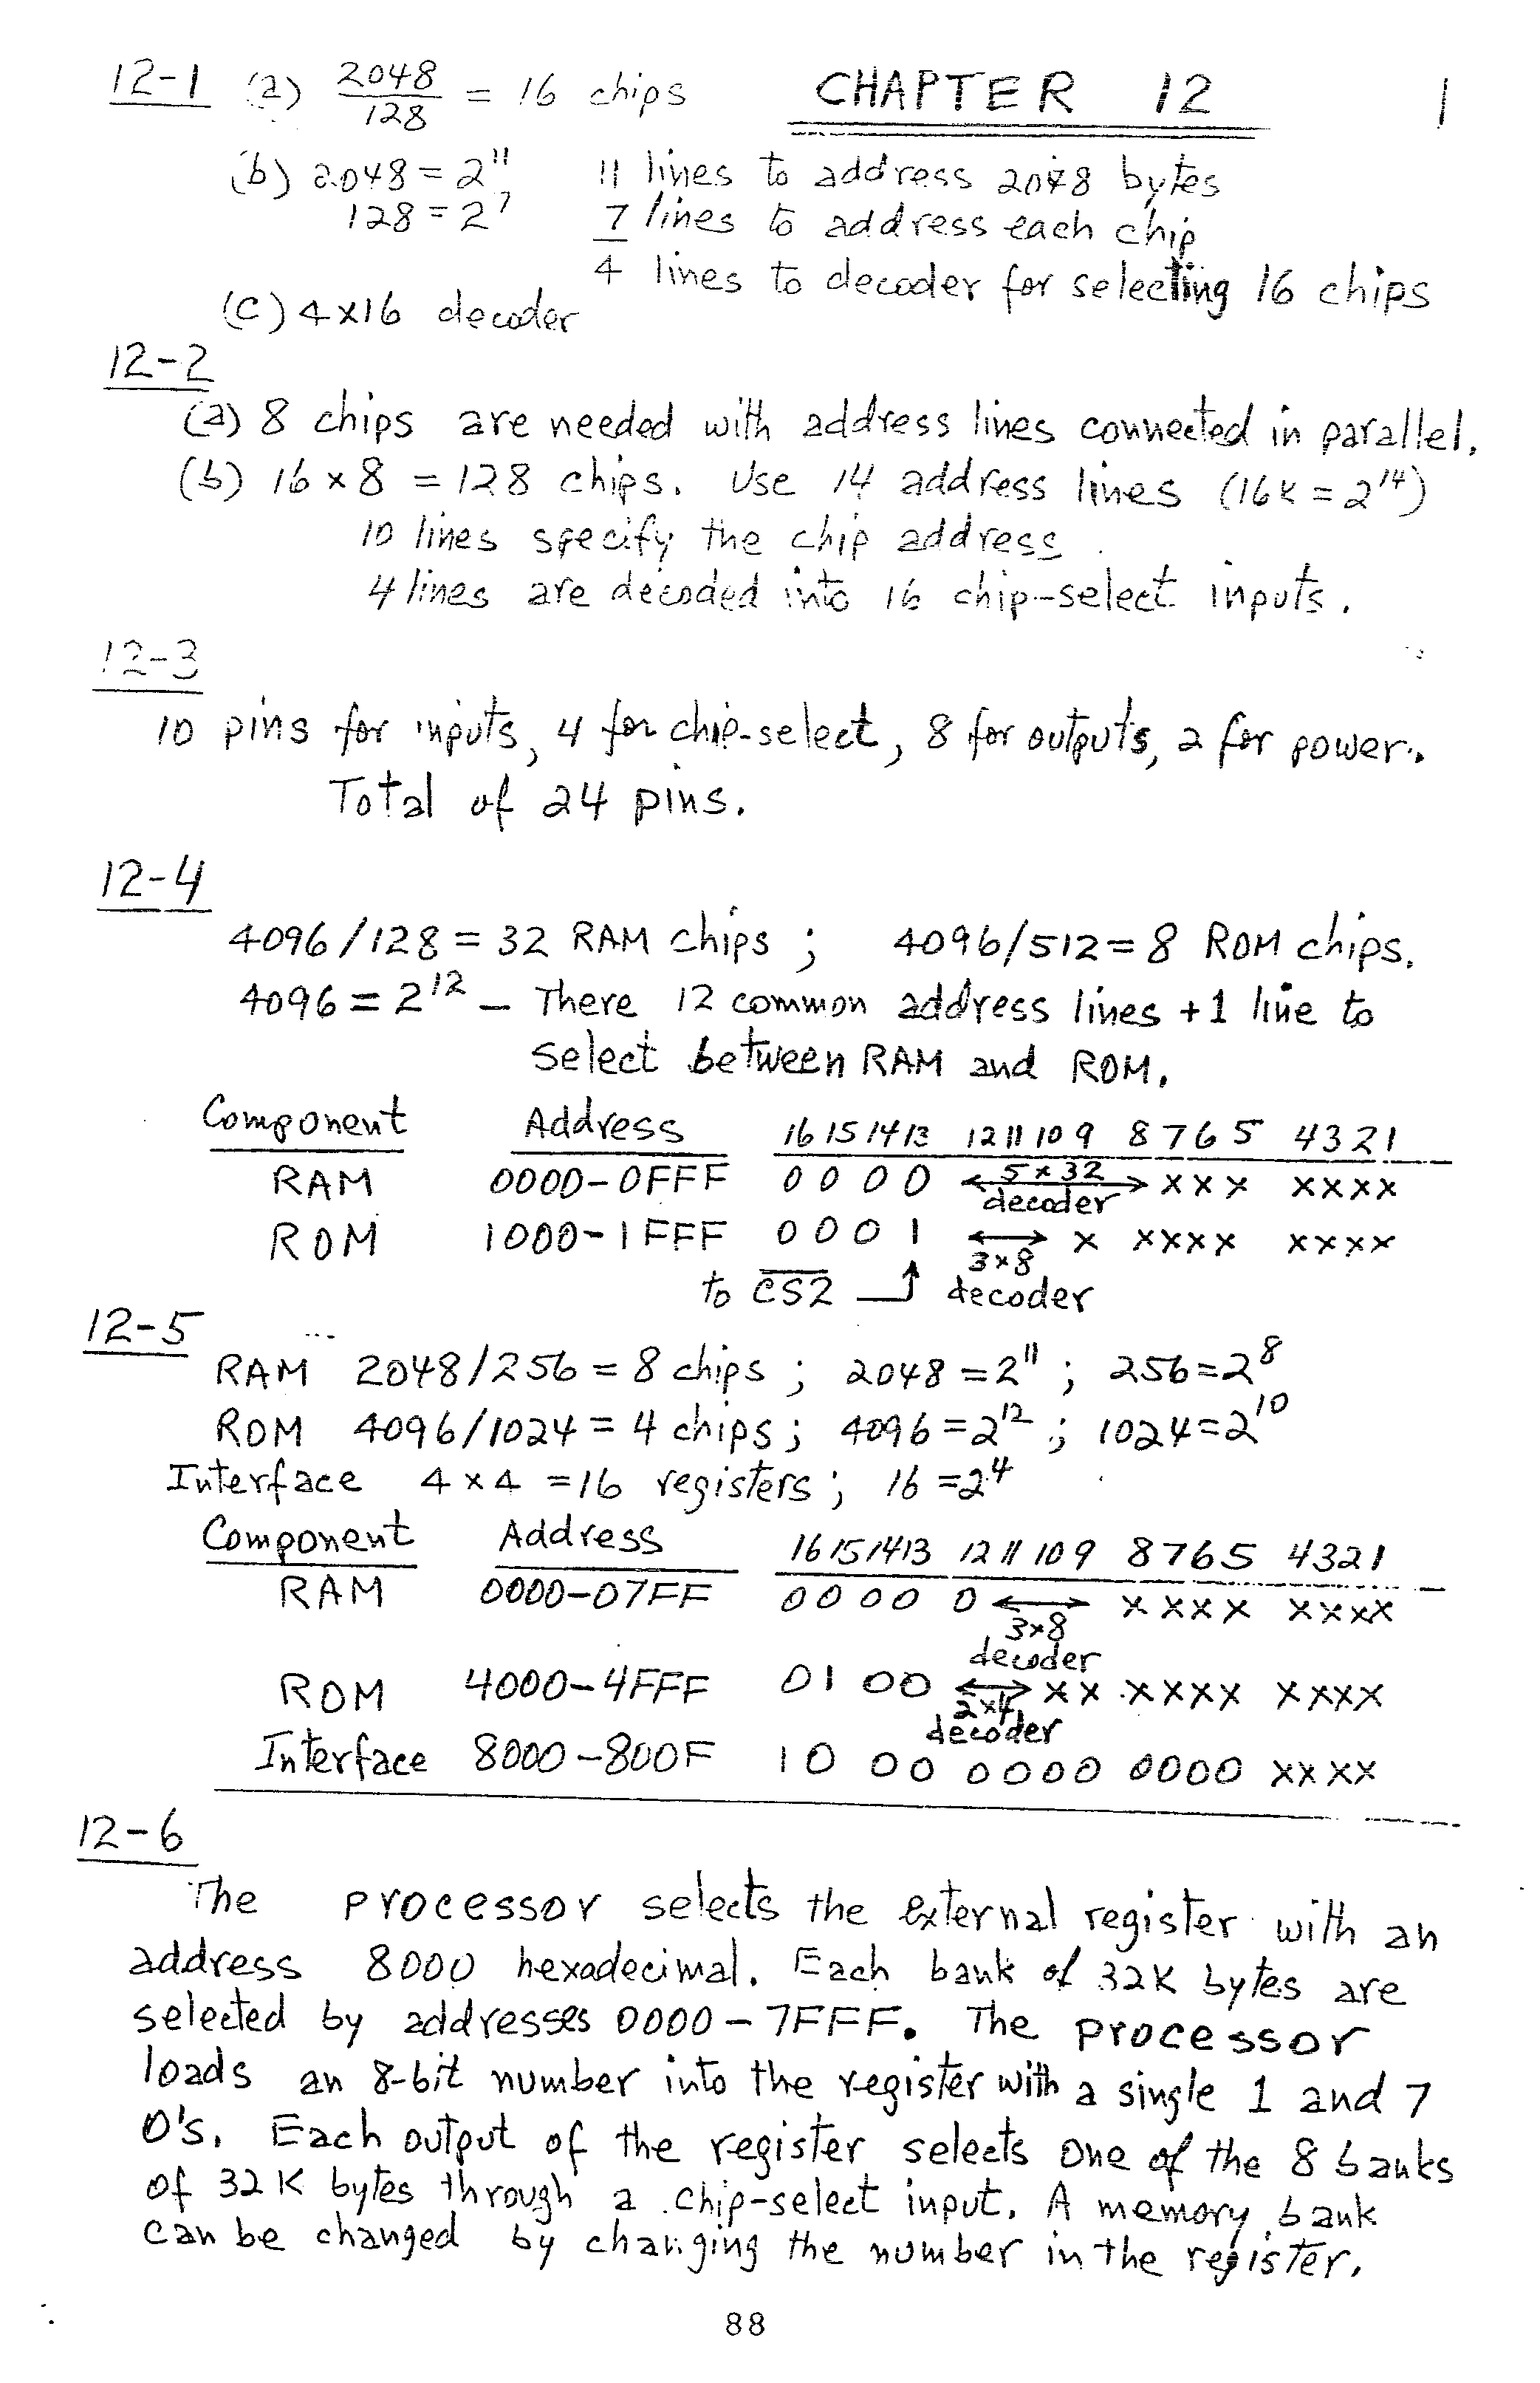 12-1 (a) 2048/128 = 16 chips CHAPTER 12 1
(b) 2048 = 2^11 11 lines to address 2048 bytes
128 = 2^7 7 lines to address each chip
4 lines to decoder for selecting 16 chips
(c) 4x16 decoder
12-2
(a) 8 chips are needed with address lines connected in parallel.
(b) 16 x 8 = 128 chips. Use 14 address lines (16K = 2^14)
10 lines specify the chip address
4 lines are decoded into 16 chip-select inputs.
12-3
10 pins for inputs, 4 for chip-select, 8 for outputs, 2 for power.
Total of 24 pins.
12-4
4096/128 = 32 RAM chips ; 4096/512 = 8 ROM chips.
4096 = 2^12 – There 12 common address lines + 1 line to
select between RAM and ROM.
Component Address 16 15 14 13 12 11 10 9 8 7 6 5 4 3 2 1
RAM 0000-0FFF 0 0 0 0 ←5x32→ x x x x x x x
decoder
ROM 1000-1FFF 0 0 0 1 ←→ x x x x x x x x x
3x8
to C̅S̅2̅ ↑ decoder
12-5
RAM 2048/256 = 8 chips ; 2048 = 2^11 ; 256 = 2^8
ROM 4096/1024 = 4 chips ; 4096 = 2^12 ; 1024 = 2^10
Interface 4 x 4 = 16 registers ; 16 = 2^4
Component Address 16 15 14 13 12 11 10 9 8 7 6 5 4 3 2 1
RAM 0000-07FF 0 0 0 0 0 ←→ x x x x x x x x
3x8
decoder
ROM 4000-4FFF 0 1 0 0 ←→ x x x x x x x x x x
2x4
decoder
Interface 8000-800F 1 0 0 0 0 0 0 0 0 0 0 0 x x x x
12-6
The processor selects the external register with an
address 8000 hexadecimal. Each bank of 32K bytes are
selected by addresses 0000 - 7FFF. The processor
loads an 8-bit number into the register with a single 1 and 7
0's. Each output of the register selects one of the 8 banks
of 32K bytes through a chip-select input. A memory bank
can be changed by changing the number in the register.
88